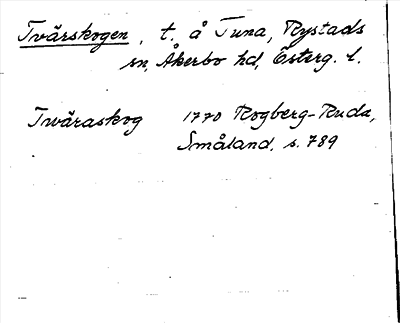 Tvärskogen, t. å Tuna, Rystads
sn, Åkerbo hd, Österg. l.
Twäraskog 1770 Rogberg-Ruda,
Småland, s. 789